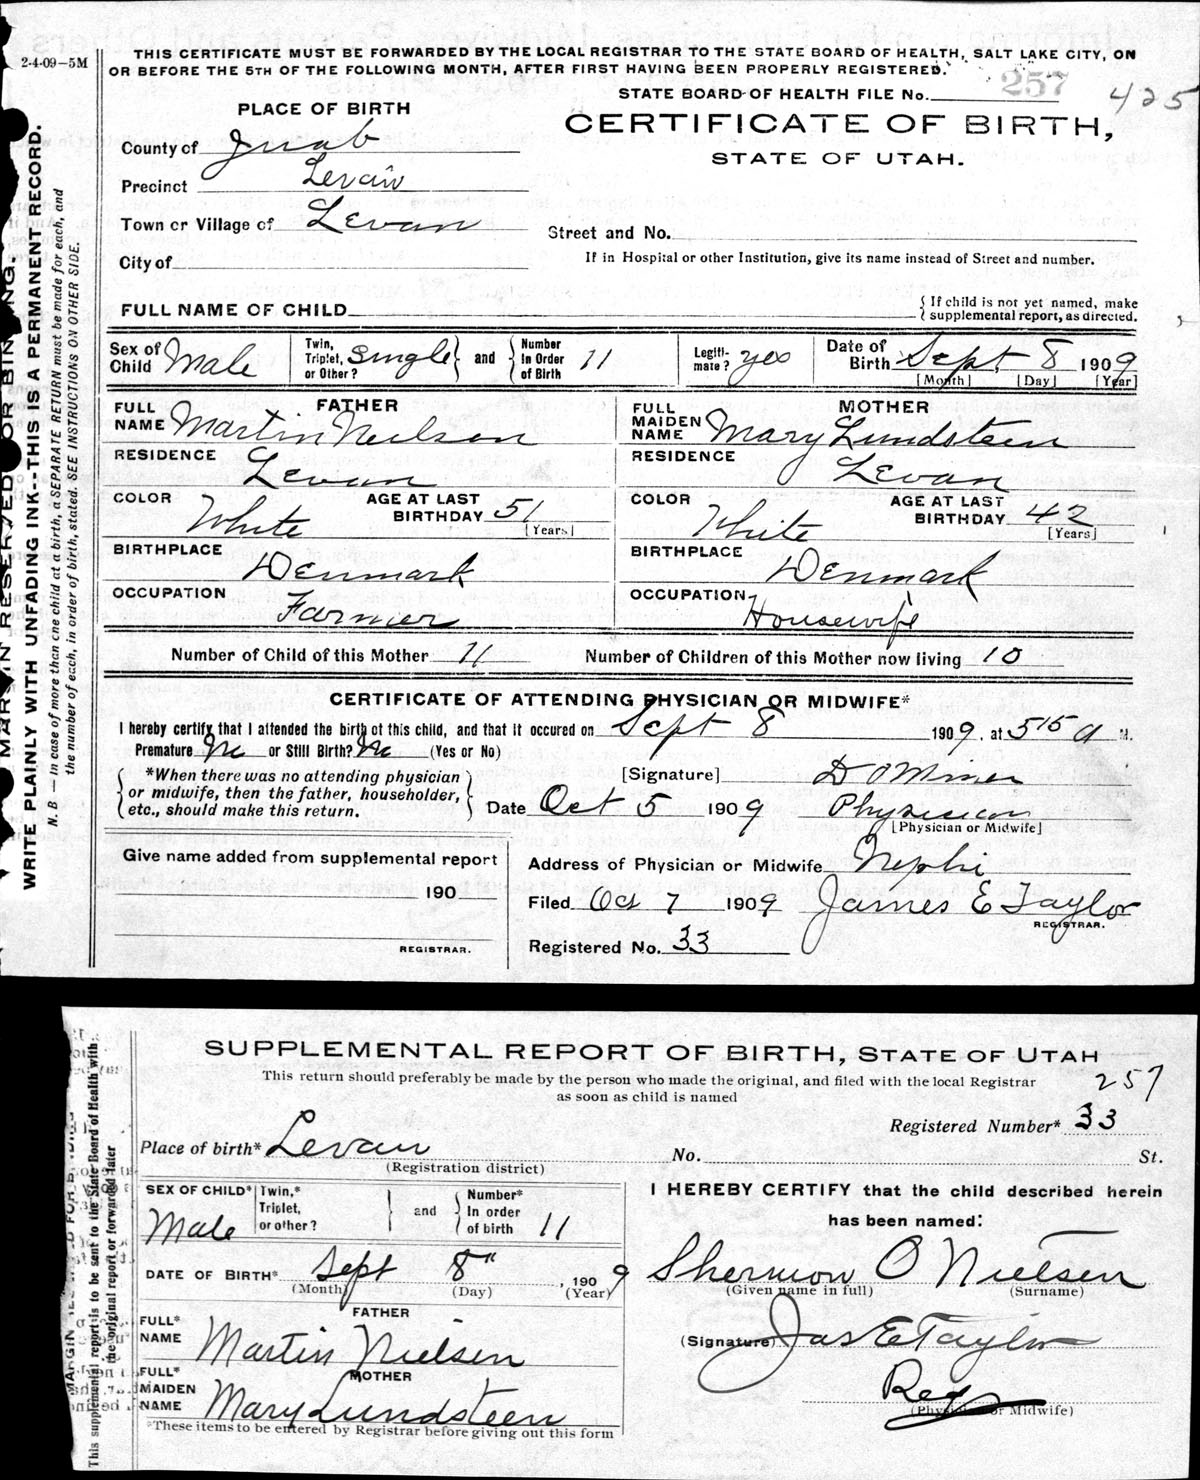 2-4-09-5M
THIS CERTIFICATE MUST BE FORWARDED BY THE LOCAL REGISTRAR TO THE STATE BOARD OF HEALTH, SALT LAKE CITY, ON
OR BEFORE THE 5TH OF THE FOLLOWING MONTH, AFTER FIRST HAVING BEEN PROPERLY REGISTERED.
STATE BOARD OF HEALTH FILE No. 257 425
PLACE OF BIRTH
CERTIFICATE OF BIRTH,
STATE OF UTAH.
County of Juab
Precinct Levan
Town or Village of Levan
Street and No.
City of
If in Hospital or other Institution, give its name instead of Street and number.
FULL NAME OF CHILD
{ If child is not yet named, make
supplemental report, as directed.
Sex of Child Male
Twin, Triplet, or Other? Single } and { Number In Order of Birth 11
Legitimate? yes
Date of Birth Sept 8 1909
[Month] [Day] [Year]
FATHER
FULL NAME Martin Neilson
RESIDENCE Levan
COLOR White AGE AT LAST BIRTHDAY 51
[Years]
BIRTHPLACE Denmark
OCCUPATION Farmer
MOTHER
FULL MAIDEN NAME Mary Lundsteen
RESIDENCE Levan
COLOR White AGE AT LAST BIRTHDAY 42
[Years]
BIRTHPLACE Denmark
OCCUPATION Housewife
Number of Child of this Mother 11 Number of Children of this Mother now living 10
CERTIFICATE OF ATTENDING PHYSICIAN OR MIDWIFE*
I hereby certify that I attended the birth of this child, and that it occured on Sept 8 1909, at 515 a M.
Premature No or Still Birth? No (Yes or No)
{ *When there was no attending physician
or midwife, then the father, householder,
etc., should make this return. }
[Signature] D O Miner
Date Oct 5 1909 Physician
[Physician or Midwife]
Give name added from supplemental report
190
REGISTRAR.
Address of Physician or Midwife Nephi
Filed Oct 7 1909 James E Taylor
REGISTRAR.
Registered No. 33
MARGIN RESERVED FOR BINDING.
WRITE PLAINLY WITH UNFADING INK--THIS IS A PERMANENT RECORD.
N. B. — In case of more than one child at a birth, a SEPARATE RETURN must be made for each, and
the number of each, in order of birth, stated. SEE INSTRUCTIONS ON OTHER SIDE.
SUPPLEMENTAL REPORT OF BIRTH, STATE OF UTAH
This return should preferably be made by the person who made the original, and filed with the local Registrar
as soon as child is named
257
Registered Number* 33
Place of birth* Levan No. St.
(Registration district)
SEX OF CHILD* Male
Twin,* Triplet, or other? } and { Number* In order of birth 11
DATE OF BIRTH* Sept 8" , 1909
(Month) (Day) (Year)
FATHER
FULL* NAME Martin Nielsen
MOTHER
FULL* MAIDEN NAME Mary Lundsteen
*These items to be entered by Registrar before giving out this form
I HEREBY CERTIFY that the child described herein
has been named:
Shermon O Nielsen
(Given name in full) (Surname)
(Signature) Jas E Taylor
Reg
(Physician or Midwife)
This supplemental report is to be sent to the State Board of Health with
the original report or forwarded later